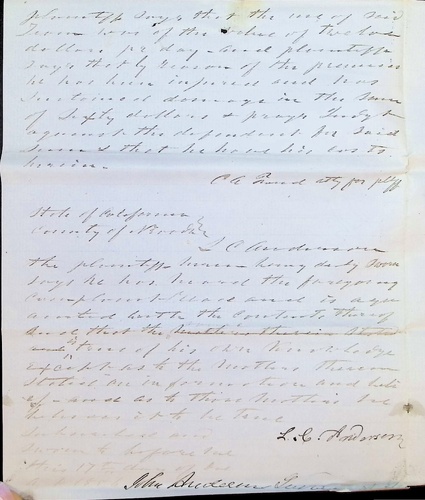 plaintiff says that the use of said
team was of the value of twelve
dollars pr day - and plaintiff
says that by reason of the premises
he has been injured and has
sustained damage in the sum
of Sixty dollars & prays Judgt
against the defendant for said
sum & that he have his costs
herein.
C A atty for plff
State of California
County of
L C Anderson
the plaintiff herein being duly sworn
says he has heard the foregoing
complaint read and is acqu
ainted with the contents thereof
and that the matters therein stated
is true of his own knowledge
except as to the matters therein
stated on information and beli
ef - and as to those matters he
believes it to be true
L. C. Anderson
Subscribed and
sworn to before me
this 17th day of
John Anderson